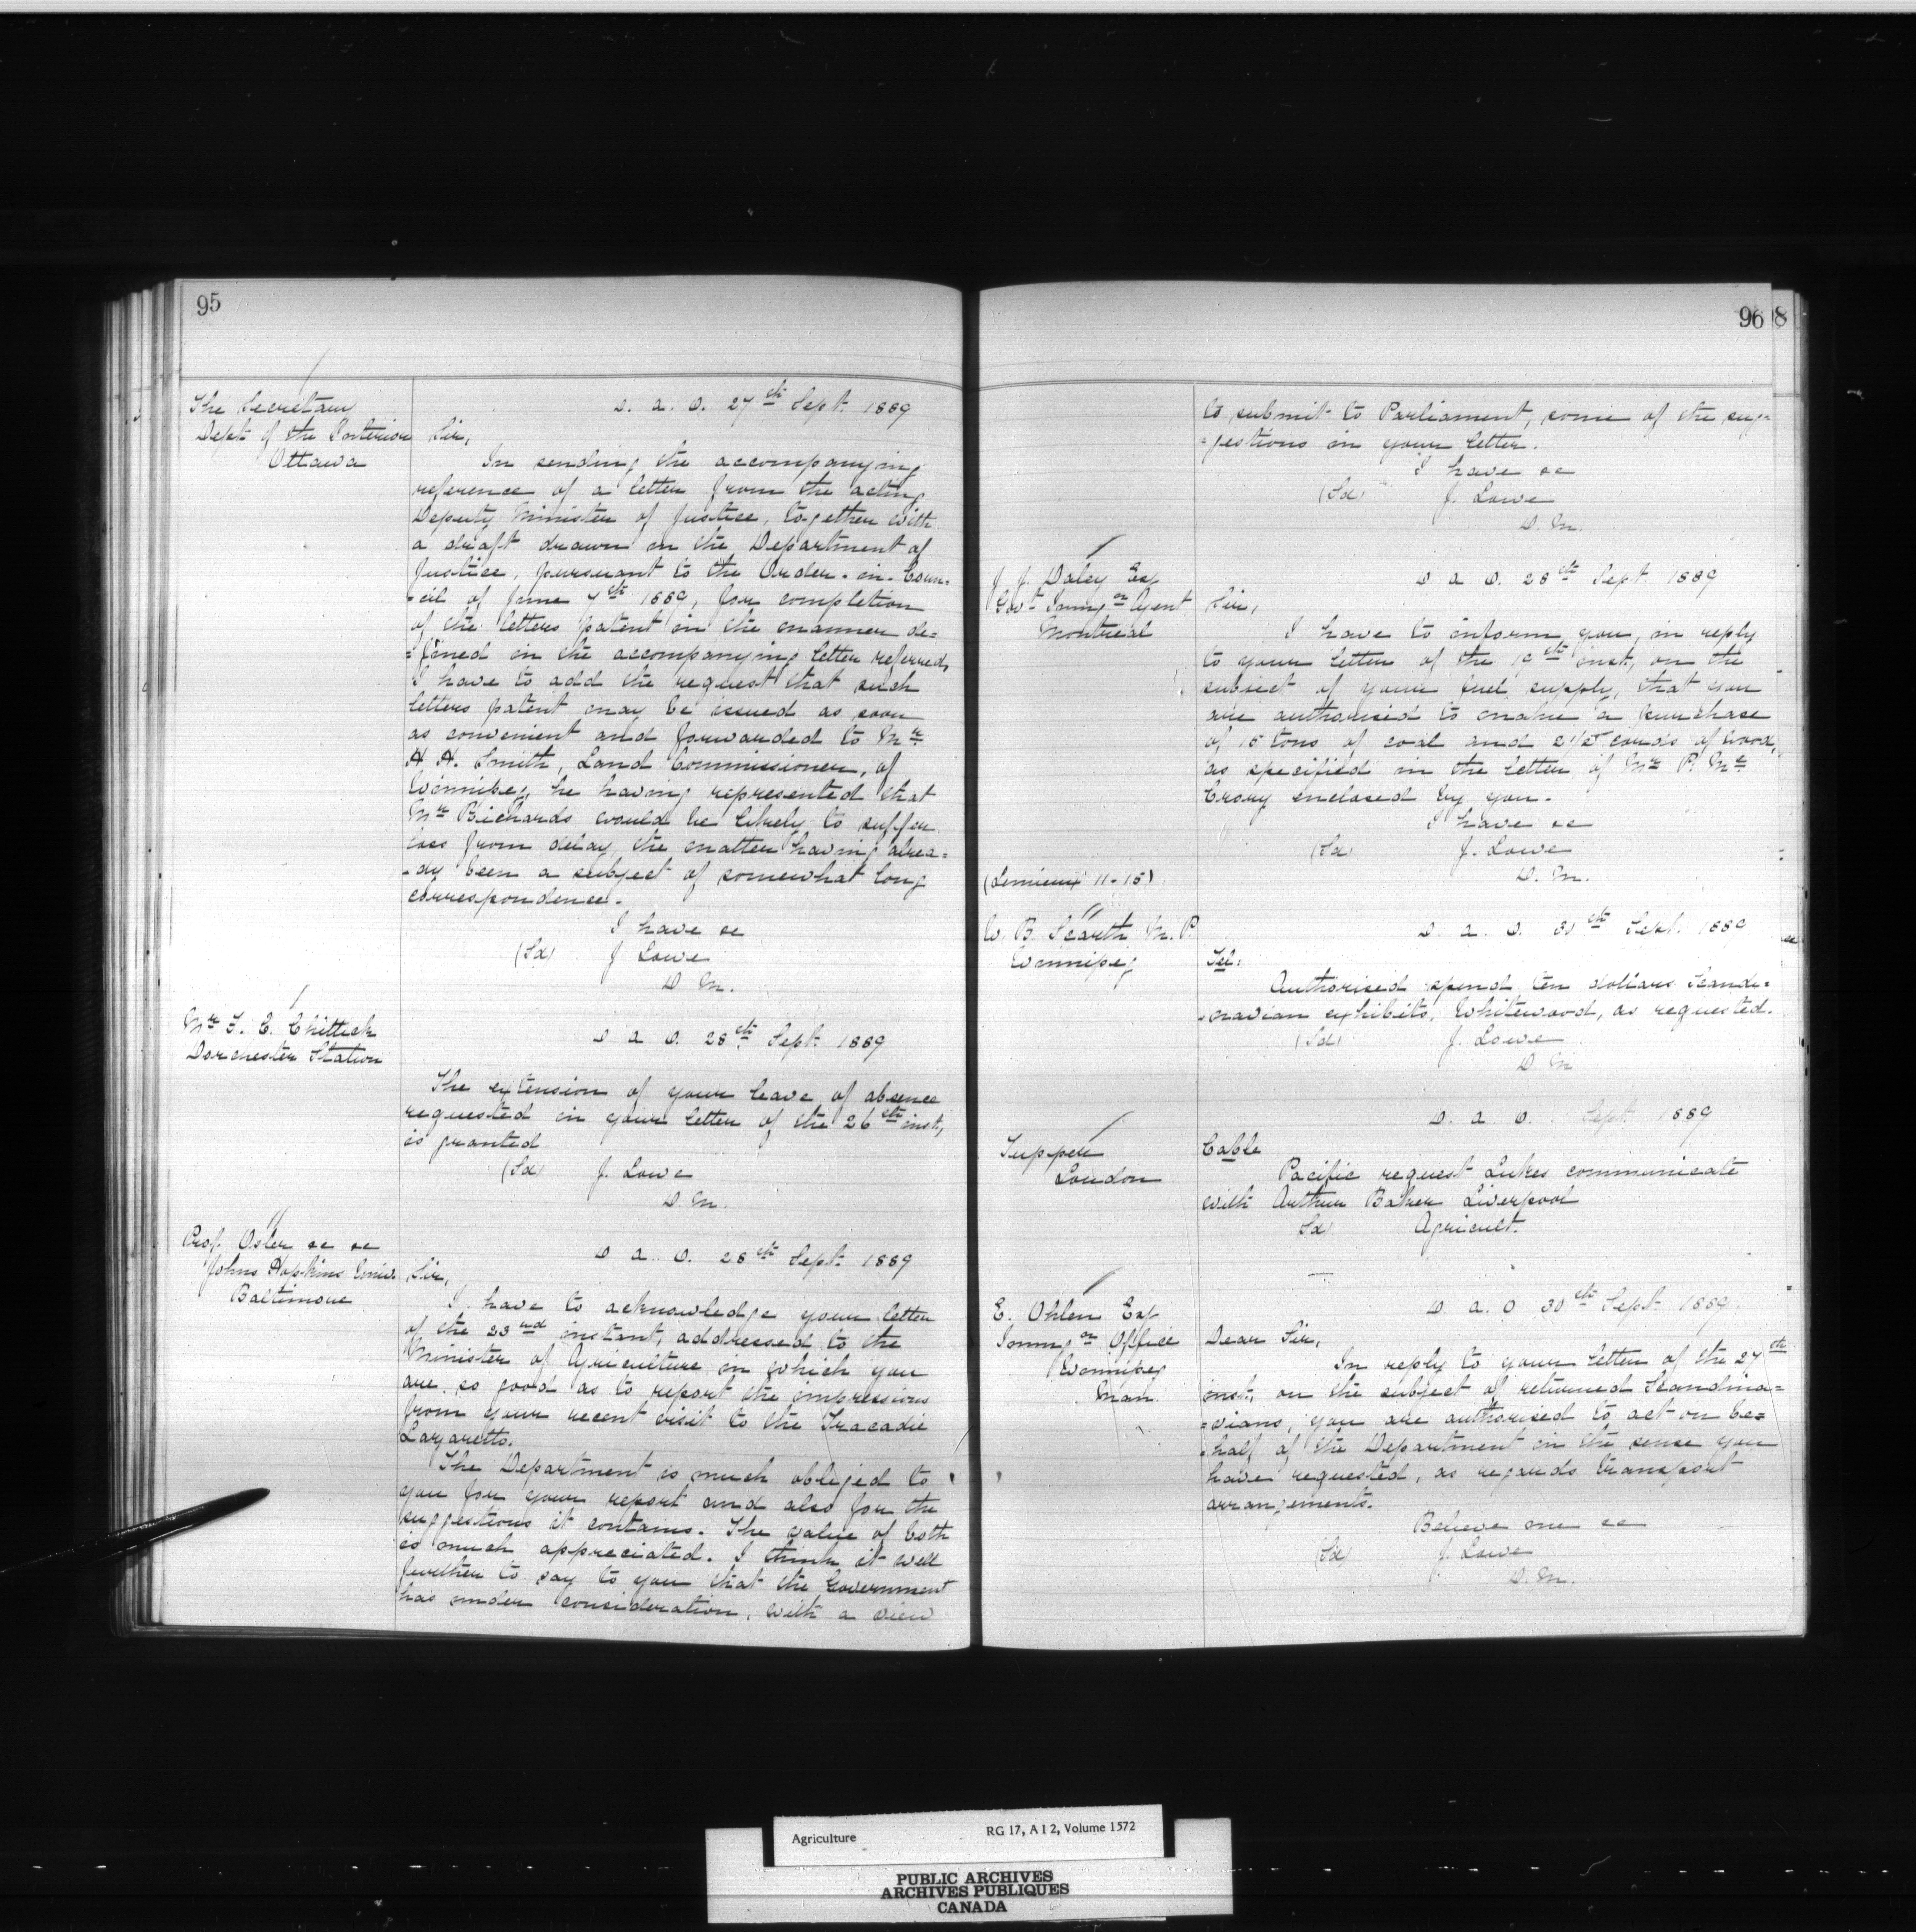 95
The Secretary
Dept of the Interior
Ottawa
D. a. O. 27th Sept. 1889
Sir,
In sending the accompanying
reference of a letter from the acting
Deputy Minister of Justice, together with
a draft drawn in the Department of
Justice, pursuant to the Order-in-Coun=
=cil of June 7th 1889, for completion
of the letters patent in the manner de=
=fined in the accompanying letter referred,
I have to add the request that such
letters patent may be issued as soon
as convenient and forwarded to Mr
H H. Smith, Land Commissioner, of
Winnipeg, he having represented that
Mr Richards would be likely to suffer
loss from delay, the matter having alrea=
=dy been a subject of somewhat long
correspondence.
I have &c
(Sd) J Lowe
D M.
Mr F. E. Chittick
Dorchester Station
D a O. 28th Sept. 1889
The extension of your leave of absence
requested in your letter of the 26th inst,
is granted
(Sd) J. Lowe
D. M.
Prof. Osler &c &c
Johns Hopkins Univ.
Baltimore
D a. O. 28th Sept. 1889
Sir,
I have to acknowledge your letter
of the 23rd instant, addressed to the
Minister of Agriculture in which you
are so good as to report the impressions
from your recent visit to the Tracadie
Lazaretto.
The Department is much obliged to
you for your report and also for the
suggestions it contains. The value of both
is much appreciated. I think it well
further to say to you that the Government
has under consideration, with a view
96
8
to submit to Parliament, some of the sug=
=gestions in your letter.
I have &c
(Sd) J. Lowe
D. M.
J. J. Daley Esq
Govt Immgon Agent
Montreal
D a O. 28th Sept. 1889
Sir,
I have to inform you, in reply
to your letter of the 19th inst, on the
subject of your fuel supply, that you
are authorised to make a purchase
of 15 tons of coal and 2 1/2 cords of wood,
as specified in the letter of Mr P. Mc
Crory enclosed by you.
I have &c
(Sd) J. Lowe
D. M.
(Lemieux 11-15)
W. B. Scarth M. P.
Winnipeg
D. a. O. 30th Sept. 1889
Tel:
Authorised spend ten dollars Scandi=
=navian exhibits, Whitewood, as requested.
(Sd) J. Lowe
D. M
Tupper
London
D. a. O. Sept. 1889
Cable
Pacific request Lukes communicate
with Arthur Baker Liverpool
Sd Agricult.
E. Ohlen Esq
Immgon Office
Winnipeg
Man.
D. a. O 30th Sept. 1889
Dear Sir,
In reply to your letter of the 27th
inst, on the subject of returned Scandina=
=vians, you are authorised to act on be=
=half of the Department in the sense you
have requested, as regards transport
arrangements.
Believe me &c
(Sd) J. Lowe
D. M.
Agriculture RG 17, A I 2, Volume 1572
PUBLIC ARCHIVES
ARCHIVES PUBLIQUES
CANADA